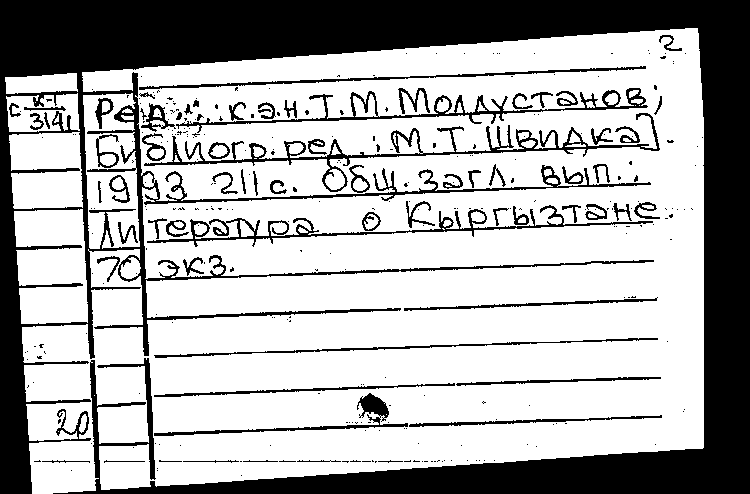 2
с К-1
3141
Ред.: к.э.н. Т.М. Молдустанов;
Библиогр. ред.: М.Т. Швидка].
1993 211 с. Общ. загл. вып.:
Литература о Кыргызтане.
70 экз.
20